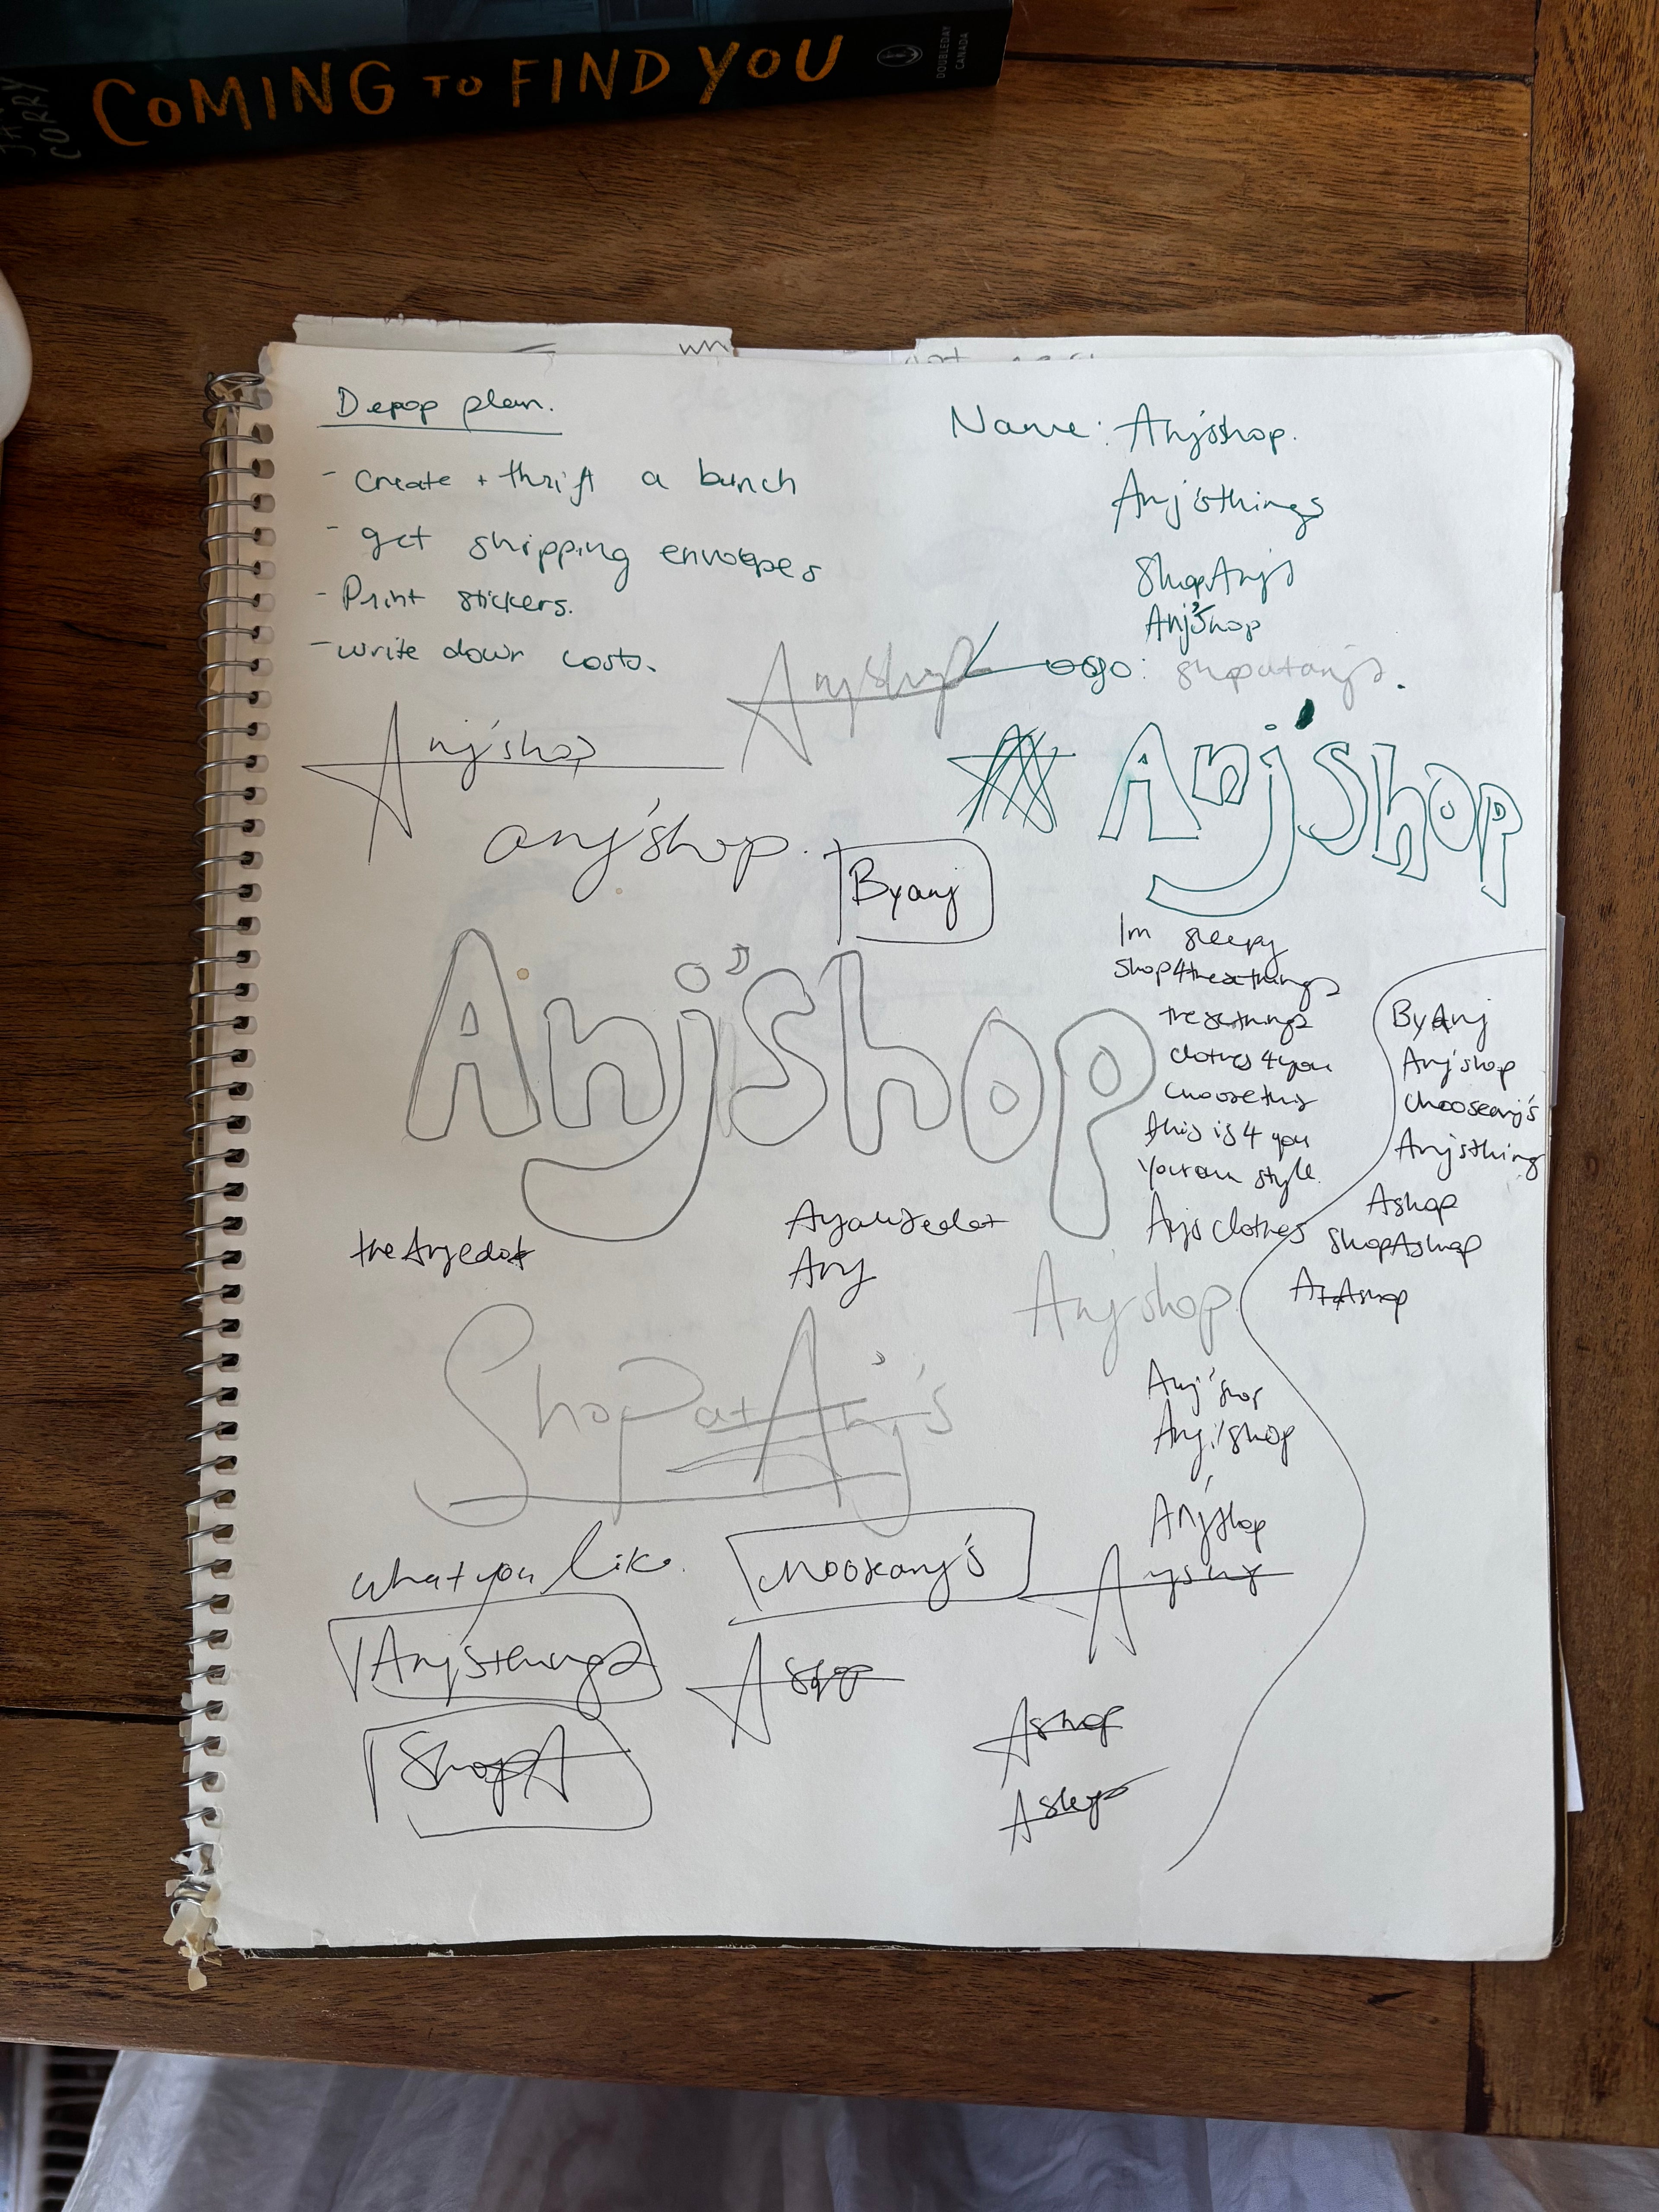 COMING TO FIND YOU
CORRY
DOUBLEDAY
CANADA
Depop plan.
- Create + thrift a bunch
- get shipping envolopes
- Print stickers.
- write down costs.
Name: Anj'sshop.
Anj'sthings
ShopAnjs
Anj'Shop
Logo: shopatanjs.
Anjshop
Anj'shop
Anj'Shop
anj'shop.
Byanj
Anj'Shop
Im sleepy
Shop4thesethings
thesethings
clothes4you
choosethis
this is 4 you
Yourown style.
Anjsclothes
ByAnj
Anj'shop
chooseanj's
Anjsthing
Ashop
ShopAshop
AtAshop
theAnjedot
Anj
Anj'shop
ShopatAnj's
Anj'shop
Anj'shop
Anj'shop
whatyou like.
chooseanj's
Anj'sthings
Ashop
ShopA
Ashop
Ashop